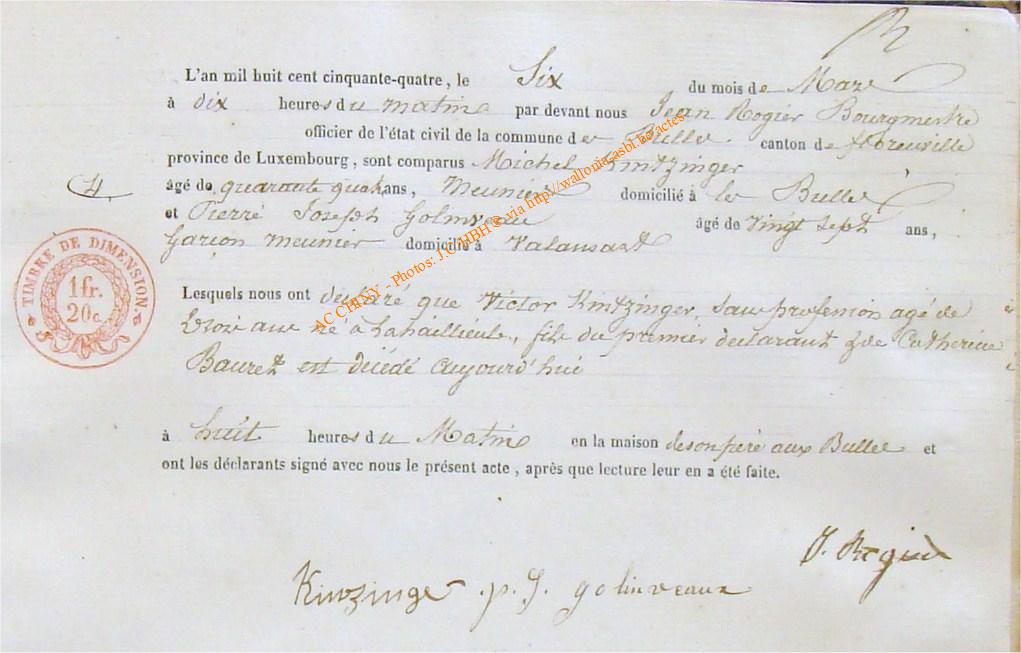 L'an mil huit cent cinquante-quatre, le Six du mois de Mars
à dix heures du matin par devant nous Jean Rogier Bourgmestre
officier de l'état civil de la commune de Bulle canton de florenville
province de Luxembourg, sont comparus Michel Kintzinger
4
âgé de quarante quatre ans, Meunier domicilié à les Bulles
et Pierre Joseph Golinveau âgé de vingt sept ans,
Garçon meunier domicilié à Valansart
TIMBRE DE DIMENSION.
1 fr.
20 c.
Lesquels nous ont déclaré que Victor Kintzinger, sans profession agé de
trois ans né à Lahaillieule, fils du premier déclarant & de Catherine
Bauret est décédé aujourd'hui
à huit heures du Matin en la maison de son père aux Bulles et
ont les déclarants signé avec nous le présent acte, après que lecture leur en a été faite.
J. Rogier
Kinzinger p. J. golinveaux
AC CHINY - Photos: J.C. HBH © via http://wallonia.asbl.be/actes